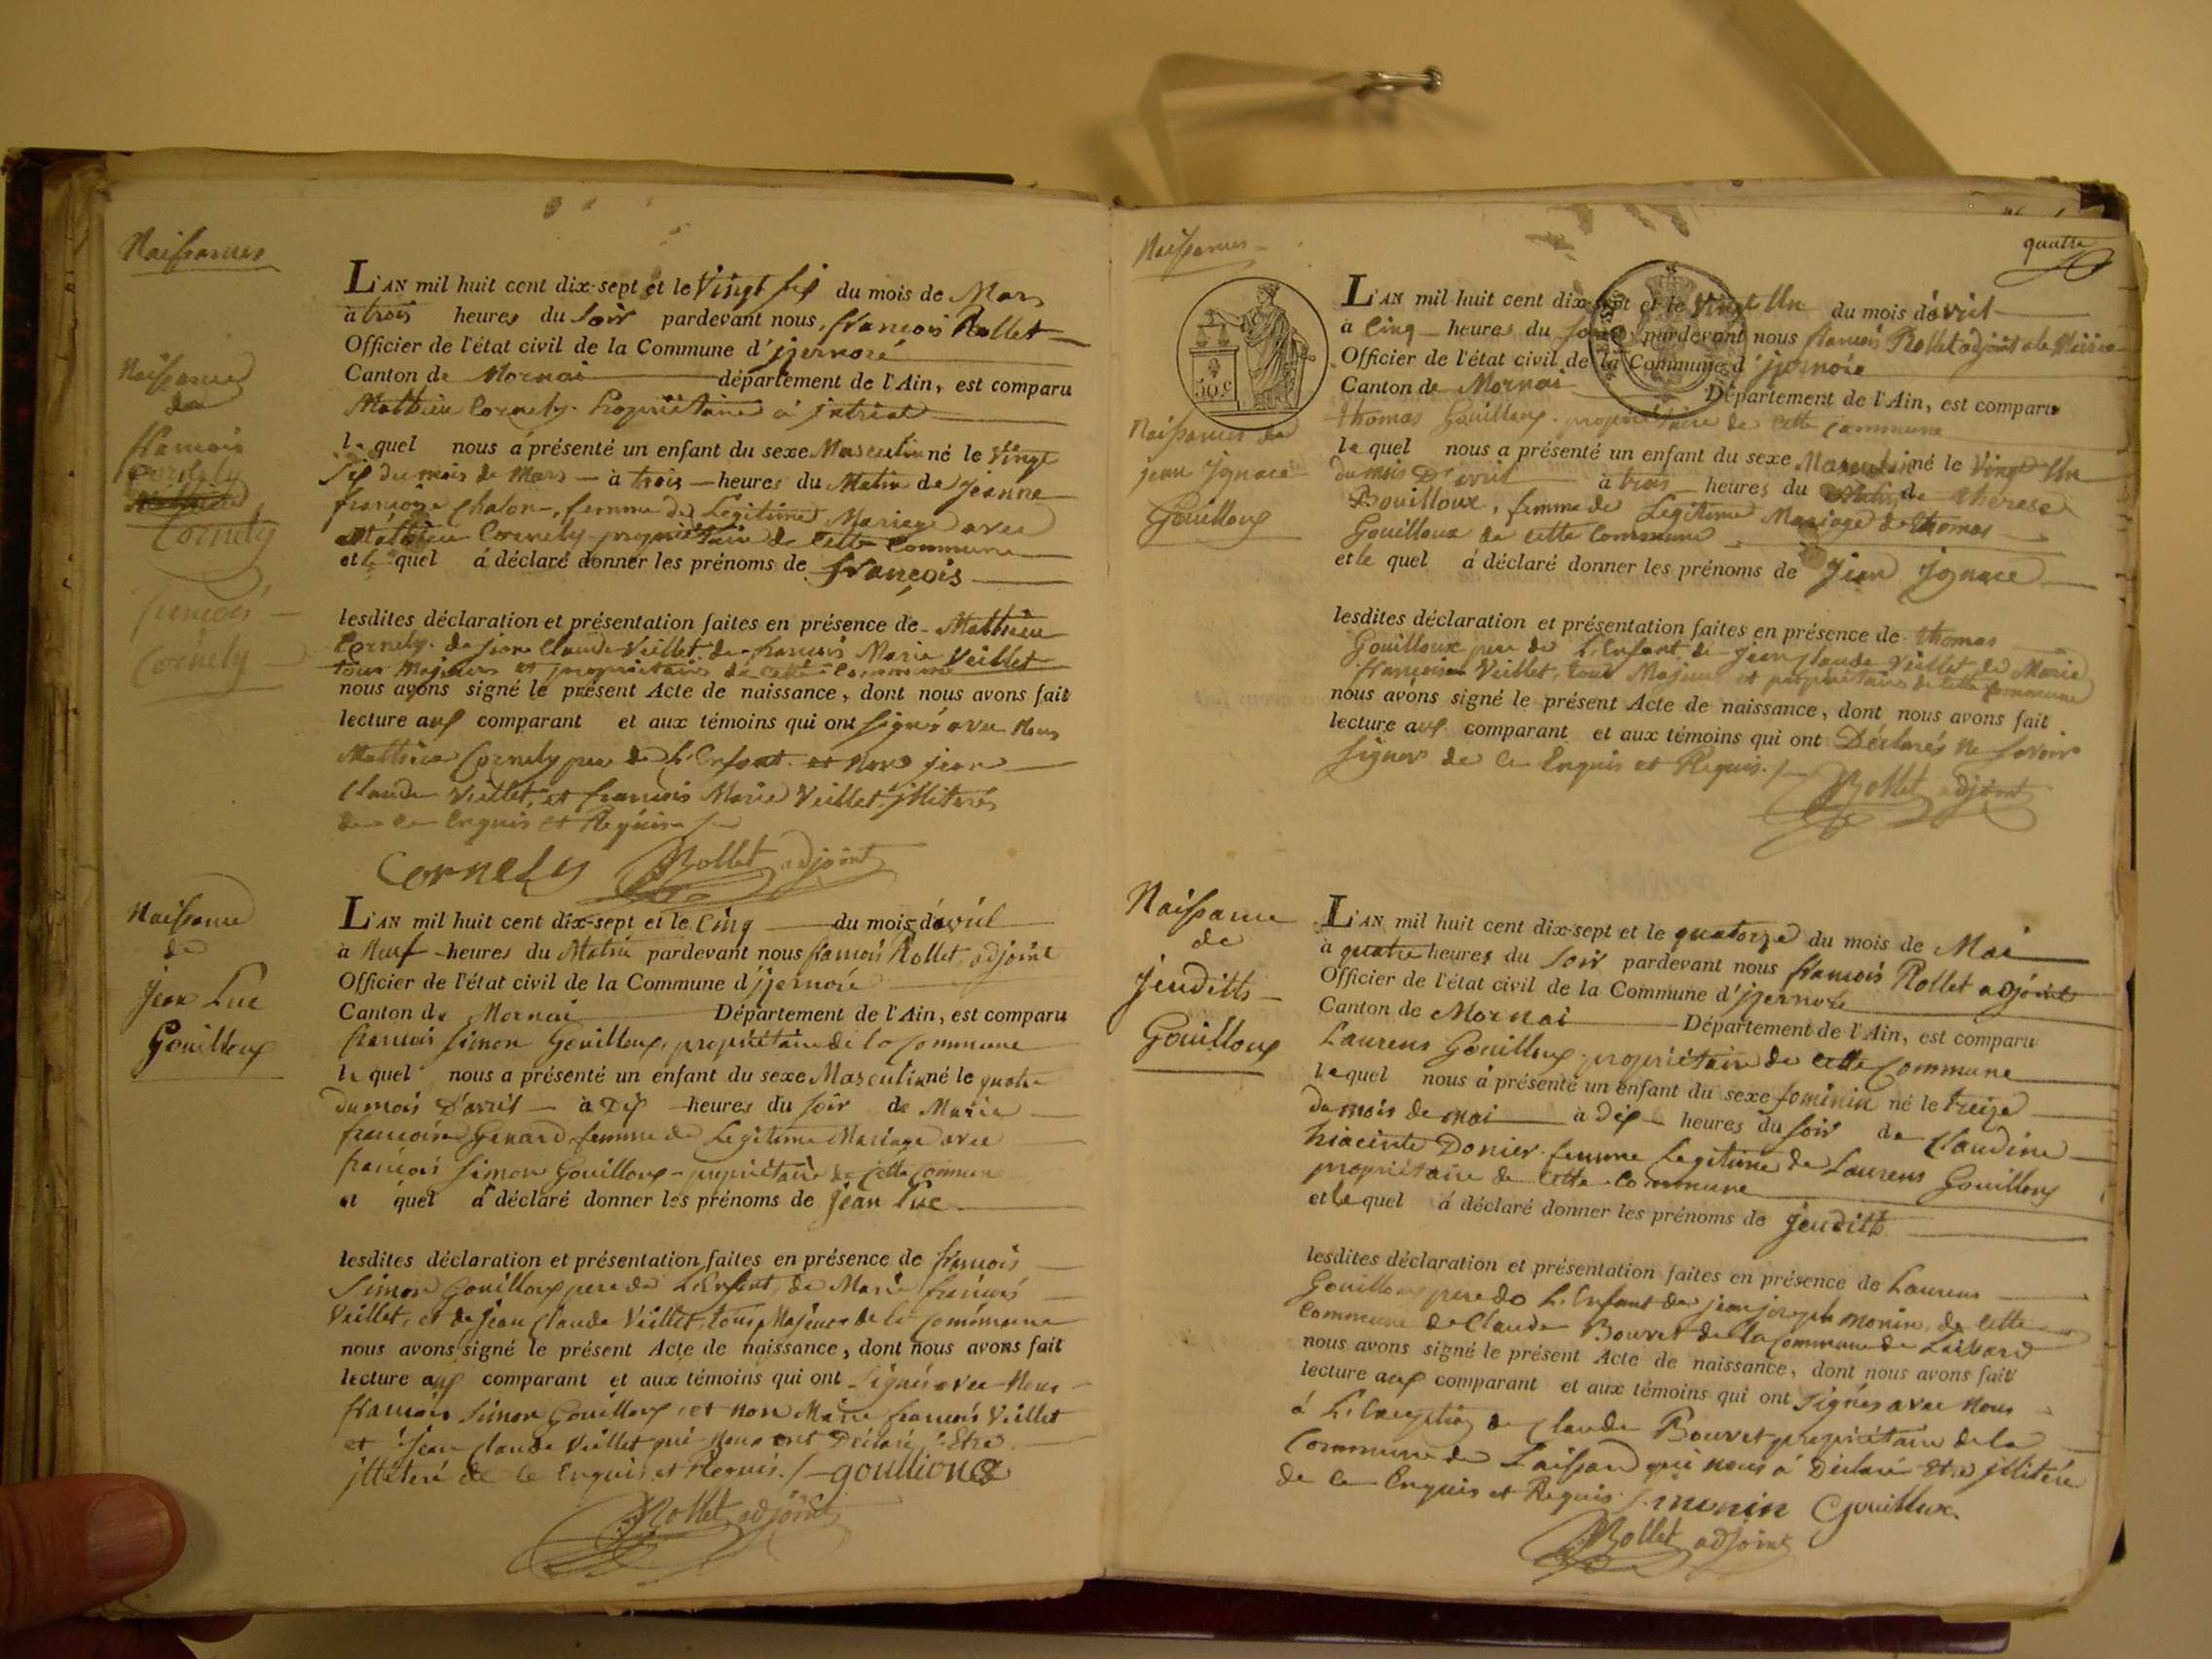 Naissances
Naissance
de
françois
Cornely
Cornely
françois
Cornely
L'AN mil huit cent dix-sept et le Vingt six du mois de Mars
à trois heures du Soir pardevant nous, francois Rollet
Officier de l'état civil de la Commune d'jzernore
Canton de Mornai département de l'Ain, est comparu
Mathieu Cornely. Propriétaire à jntriat
le quel nous à présenté un enfant du sexe Masculin né le Vingt
Six du mois de Mars à trois heures du Matin de jeanne
françoise Chalon, femme de Légitime Mariage avec
Mathieu Cornely propriétaire de Cette Commune
et le quel á déclaré donner les prénoms de françois
lesdites déclaration et présentation faites en présence de Mathieu
Cornely. de jean Claude Veillet. de francois Marie Veillet
tous Majeurs et propriétaires de cette Commune
nous avons signé le présent Acte de naissance, dont nous avons fait
lecture aux comparant et aux témoins qui ont Signés avec Nous
Mathieu Cornely pere de L'Enfant et Non jean
Claude Veillet, et francois Marie Veillet, jlliterés
de ce Enquis et Requis
Cornely Rollet adjoint
Naissance
de
jean Luc
Gouilloux
L'AN mil huit cent dix-sept et le Cinq du mois d'avril
à Neuf heures du Matin pardevant nous francois Rollet, adjoint
Officier de l'état civil de la Commune d'jzernoré
Canton de Mornai Département de l'Ain, est comparu
francois Simon Gouilloux, propriétaire de la Commune
le quel nous a présenté un enfant du sexe Masculin né le quatre
du mois D'avril à Dix heures du Soir de Marie
francoise Genard femme de Legitime Mariage avec
francois Simon Gouilloux propriétaire de Cette Commun
et quel á déclaré donner les prénoms de jean Luc
lesdites déclaration et présentation faites en présence de francois
Simon Gouilloux pere de L'Enfant, de Marie francois
Veillet, et de jean Claude Veillet, tous Majeurs de la Commune
nous avons signé le présent Acte de naissance, dont nous avons fait
lecture aux comparant et aux témoins qui ont Signés avec Nous
francois Simon Gouilloux, et non Marie francois Veillet
et jean Claude Veillet qui nous ont Déclaré Etre
jlliteré de Ce Enquis et Requis. goullioux
Rollet adjoint
Naissances
quatre
50 c
Naissance de
jean jgnace
Gouilloux
L'AN mil huit cent dix-sept et le Vingt Un du mois d'avril
à Cinq heures du Soir pardevant nous francois Rollet adjoint a la Mairie
Officier de l'état civil de la Commune d'jzernore
Canton de Mornai Département de l'Ain, est comparu
thomas Gouilloux. propriétaire de Cette Commune
le quel nous a présenté un enfant du sexe Masculin né le Vingt Un
du mois D'avril à trois heures du Matin de therese
Bouilloux, femme de Legitime Mariage de thomas
Gouilloux de cette Commune
et le quel á déclaré donner les prénoms de jean jgnace
lesdites déclaration et présentation faites en présence de thomas
Gouilloux pere de L'Enfant de jean Claude Veillet de Marie
francoise Veillet, tous Majeurs et propriétaires de Cette Commune
nous avons signé le présent Acte de naissance, dont nous avons fait
lecture aux comparant et aux témoins qui ont Déclarés ne Savoir
Signer de Ce Enquis et Requis.
Rollet adjoint
Naissance
de
jeuditts
Gouilloux
L'AN mil huit cent dix-sept et le quatorze du mois de Mai
à quatre heures du Soir pardevant nous francois Rollet adjoint
Officier de l'état civil de la Commune d'jzernore
Canton de Mornai Département de l'Ain, est comparu
Laurens Gouilloux propriétaire de cette Commune
le quel nous à présenté un enfant du sexe feminin né le treize
du mois de mai à Dix heures du Soir de Claudine
hiacinte Donier femme Legitime de Laurens Gouilloux
propriétaire de Cette Commune
et le quel á déclaré donner les prénoms de jeuditts
lesdites déclaration et présentation faites en présence de Laurens
Gouilloux pere de L'Enfant de jean joseph monin, de cette
Commune de Claude Bouvet de la Commune de Laissard
nous avons signé le présent Acte de naissance, dont nous avons fait
lecture aux comparant et aux témoins qui ont Signés avec Nous
á L'Exception de Claude Bouvet propriétaire de la
Commune de Laissard qui nous á Déclaré Etre jlliteré
de Ce Enquis et Requis. monin Gouilloux.
Rollet adjoint